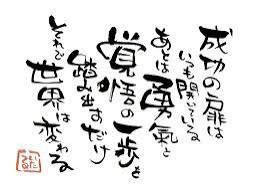 成功の扉は
いつも開いている
あとは勇氣と
覚悟の一歩を
踏み出すだけ
それで
世界は変わる